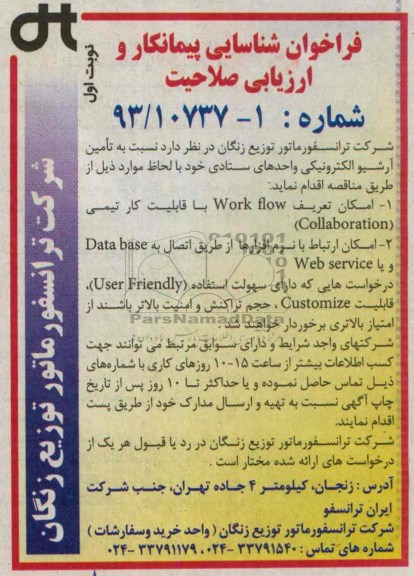 نوبت اول
فراخوان شناسایی پیمانکار و
ارزیابی صلاحیت
شماره : ۱- ۹۳/۱۰۷۳۷
شرکت ترانسفورماتور توزیع زنگان در نظر دارد نسبت به تأمین
آرشیو الکترونیکی واحدهای ستادی خود با لحاظ موارد ذیل از
طریق مناقصه اقدام نماید.
۱- امکان تعریف Work flow با قابلیت کار تیمی
(Collaboration)
۲- امکان ارتباط با نرم افزارها از طریق اتصال به Data base
و یا Web service
درخواست هایی که دارای سهولت استفاده (User Friendly)،
قابلیت Customize ، حجم تراکنش و امنیت بالاتر باشند از
امتیاز بالاتری برخوردار خواهند شد.
ParsNamadData
شرکتهای واجد شرایط و دارای سوابق مرتبط می توانند جهت
کسب اطلاعات بیشتر از ساعت ۱۵-۱۰ روزهای کاری با شماره‌های
ذیل تماس حاصل نموده و یا حداکثر تا ۱۰ روز پس از تاریخ
چاپ آگهی نسبت به تهیه و ارسال مدارک خود از طریق پست
اقدام نمایند.
شرکت ترانسفورماتور توزیع زنگان در رد یا قبول هر یک از
درخواست های ارائه شده مختار است .
آدرس : زنجان، کیلومتر ۴ جاده تهران، جنب شرکت
ایران ترانسفو
شرکت ترانسفورماتور توزیع زنگان ( واحد خرید وسفارشات )
شماره های تماس : ۳۳۷۹۱۵۴۰ -۰۲۴، ۳۳۷۹۱۱۷۹ -۰۲۴
شرکت ترانسفورماتور توزیع زنگان